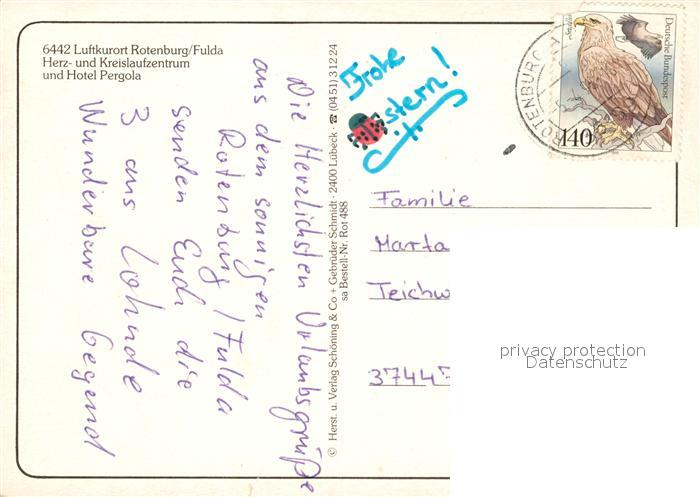 6442 Luftkurort Rotenburg/Fulda
Herz- und Kreislaufzentrum
und Hotel Pergola
Die Herzlichsten Urlaubsgrüße
aus dem sonnigen
Rotenburg / Fulda
senden Euch die
3 aus Lohnde
Wunderbare Gegend
© Herst. u. Verlag Schöning & Co + Gebrüder Schmidt · 2400 Lübeck · ☎ (04 51) 3 12 24
sa Bestell-Nr. Rot 488
Frohe
Ostern!
ROTENBURG
Deutsche Bundespost
140
Familie
Marta
Teichw
37447
privacy protection
Datenschutz